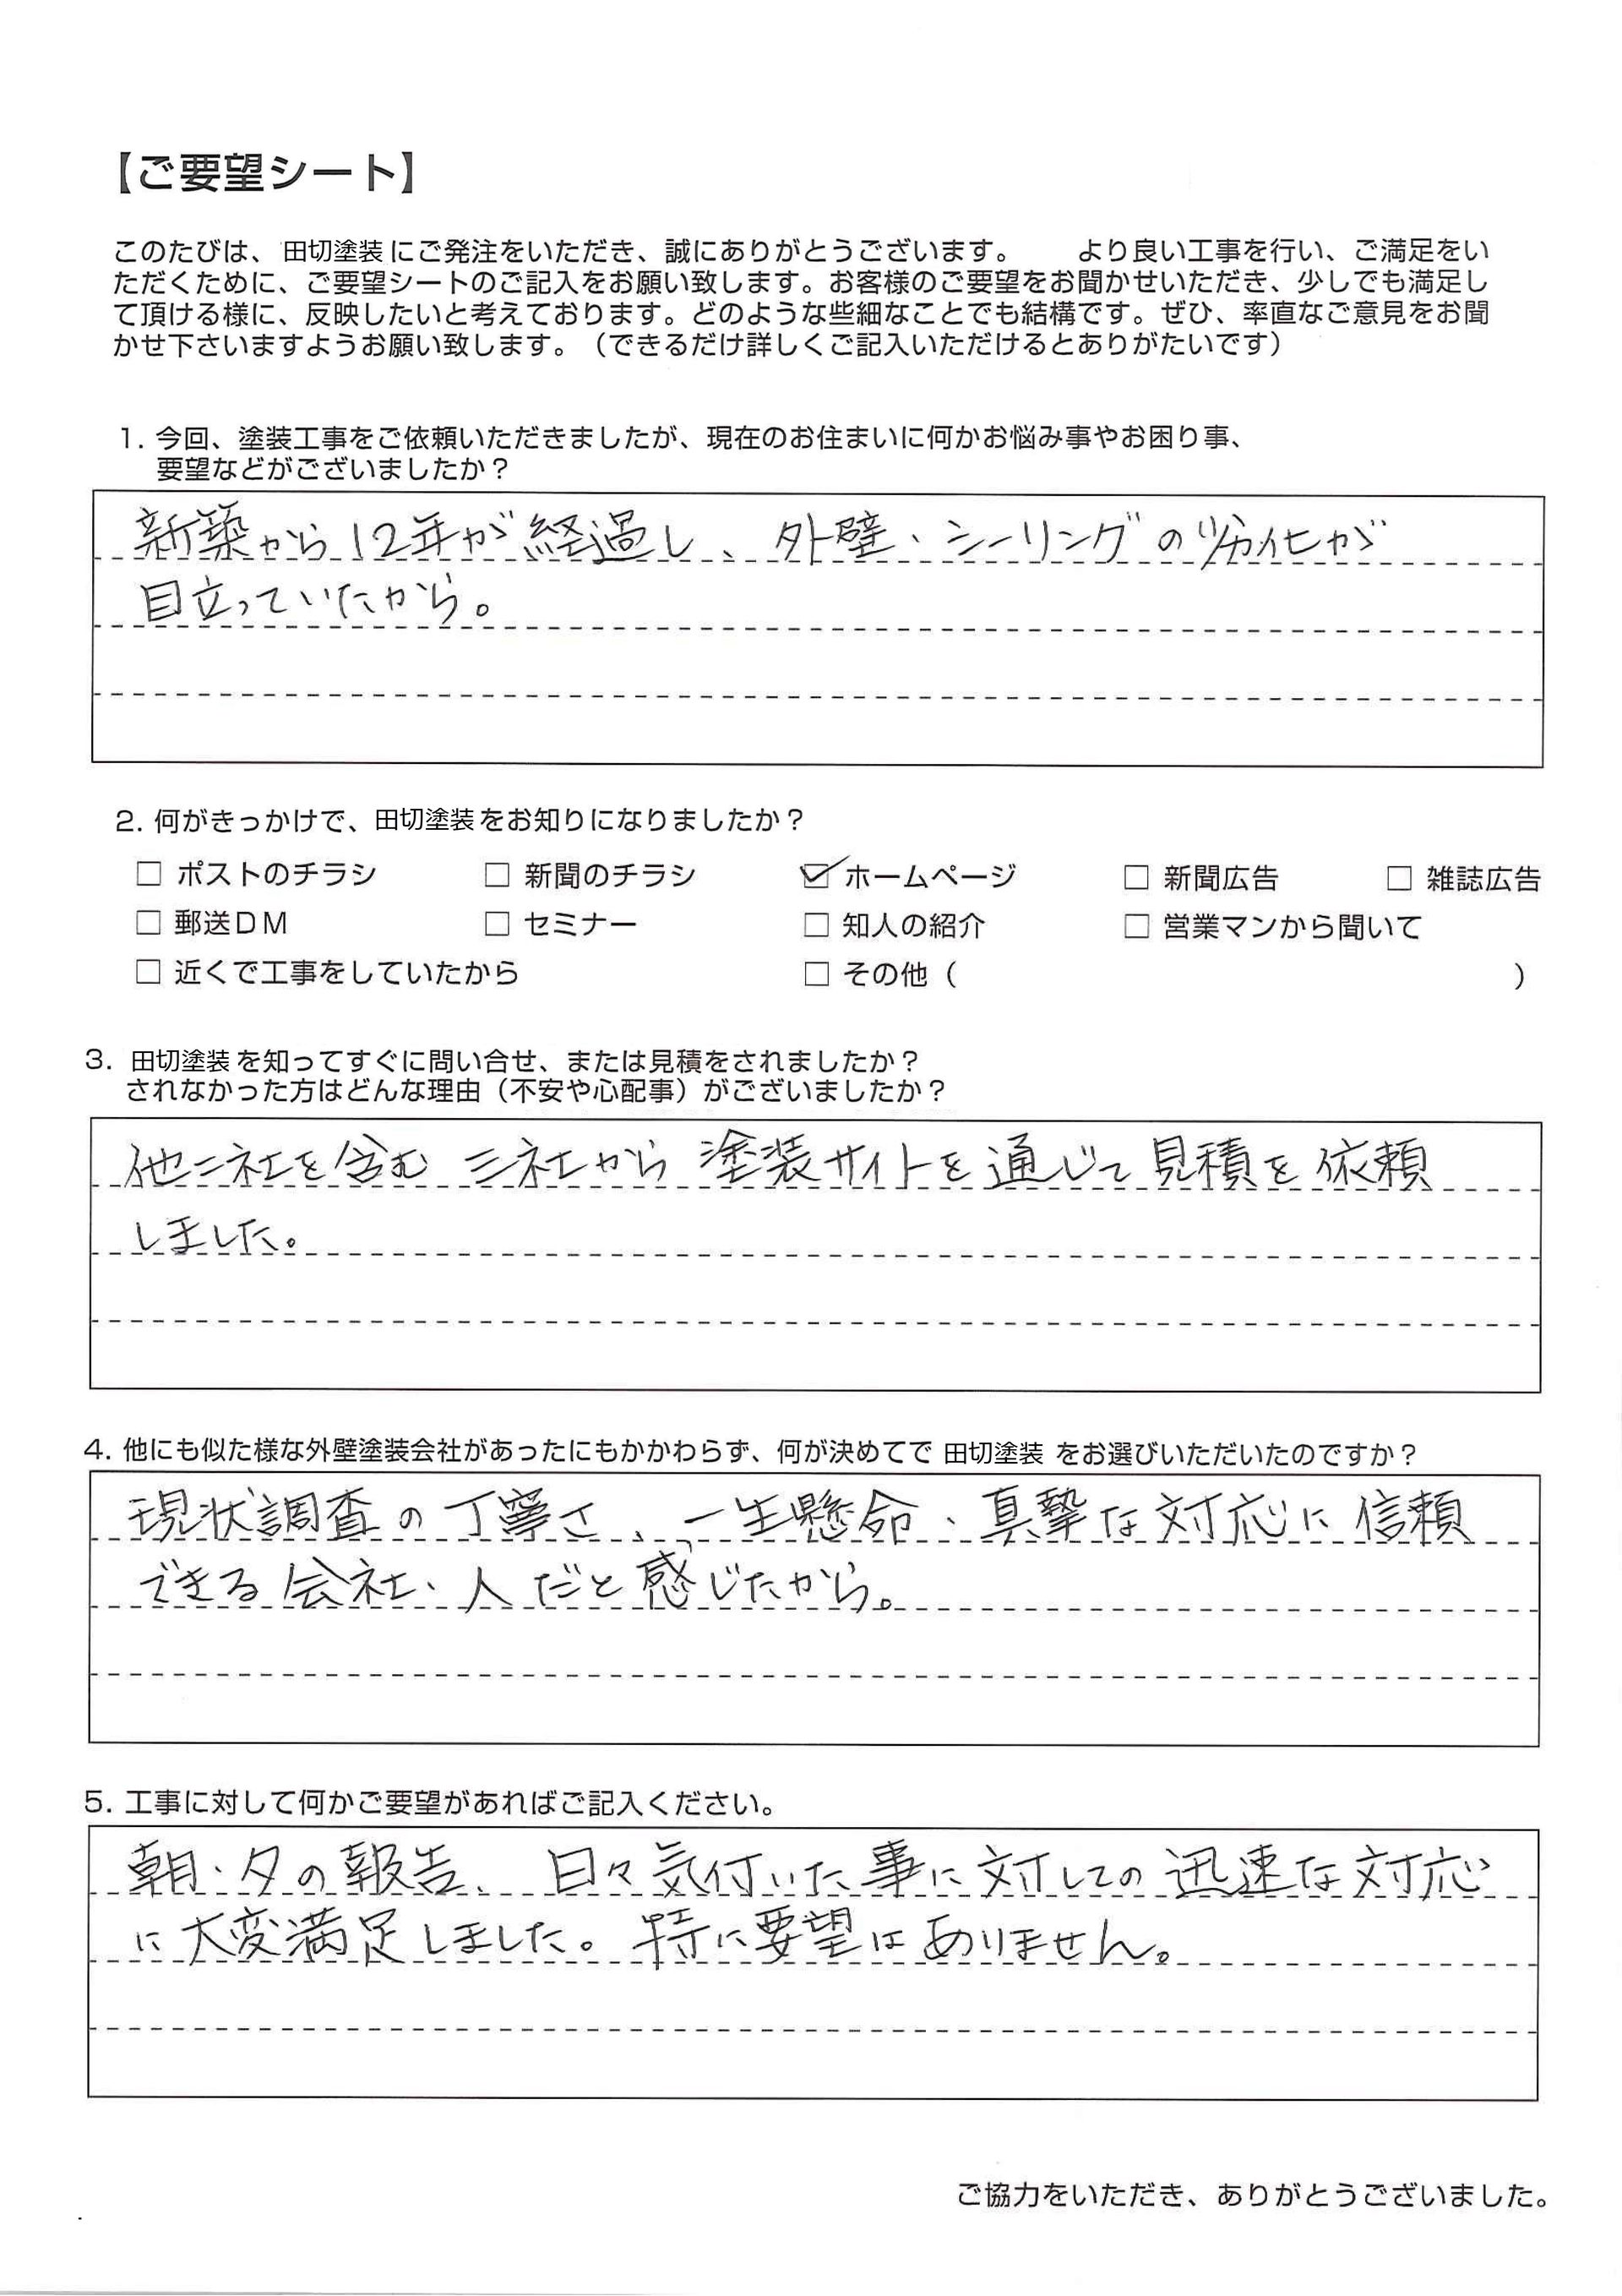 【ご要望シート】
このたびは、田切塗装にご発注をいただき、誠にありがとうございます。　より良い工事を行い、ご満足をい
ただくために、ご要望シートのご記入をお願い致します。お客様のご要望をお聞かせいただき、少しでも満足し
て頂ける様に、反映したいと考えております。どのような些細なことでも結構です。ぜひ、率直なご意見をお聞
かせ下さいますようお願い致します。（できるだけ詳しくご記入いただけるとありがたいです）
1. 今回、塗装工事をご依頼いただきましたが、現在のお住まいに何かお悩み事やお困り事、
要望などがございましたか？
新築から12年が経過し、外壁・シーリングの劣化が
目立っていたから。
2. 何がきっかけで、田切塗装をお知りになりましたか？
□ ポストのチラシ □ 新聞のチラシ ☑ ホームページ □ 新聞広告 □ 雑誌広告
□ 郵送DM □ セミナー □ 知人の紹介 □ 営業マンから聞いて
□ 近くで工事をしていたから □ その他（　　　）
3. 田切塗装を知ってすぐに問い合せ、または見積をされましたか？
されなかった方はどんな理由（不安や心配事）がございましたか？
他二社を含む三社から塗装サイトを通じて見積を依頼
しました。
4. 他にも似た様な外壁塗装会社があったにもかかわらず、何が決めてで 田切塗装 をお選びいただいたのですか？
現状調査の丁寧さ、一生懸命、真摯な対応に信頼
できる会社、人だと感じたから。
5. 工事に対して何かご要望があればご記入ください。
朝・夕の報告、日々気付いた事に対しての迅速な対応
に大変満足しました。特に要望はありません。
ご協力をいただき、ありがとうございました。